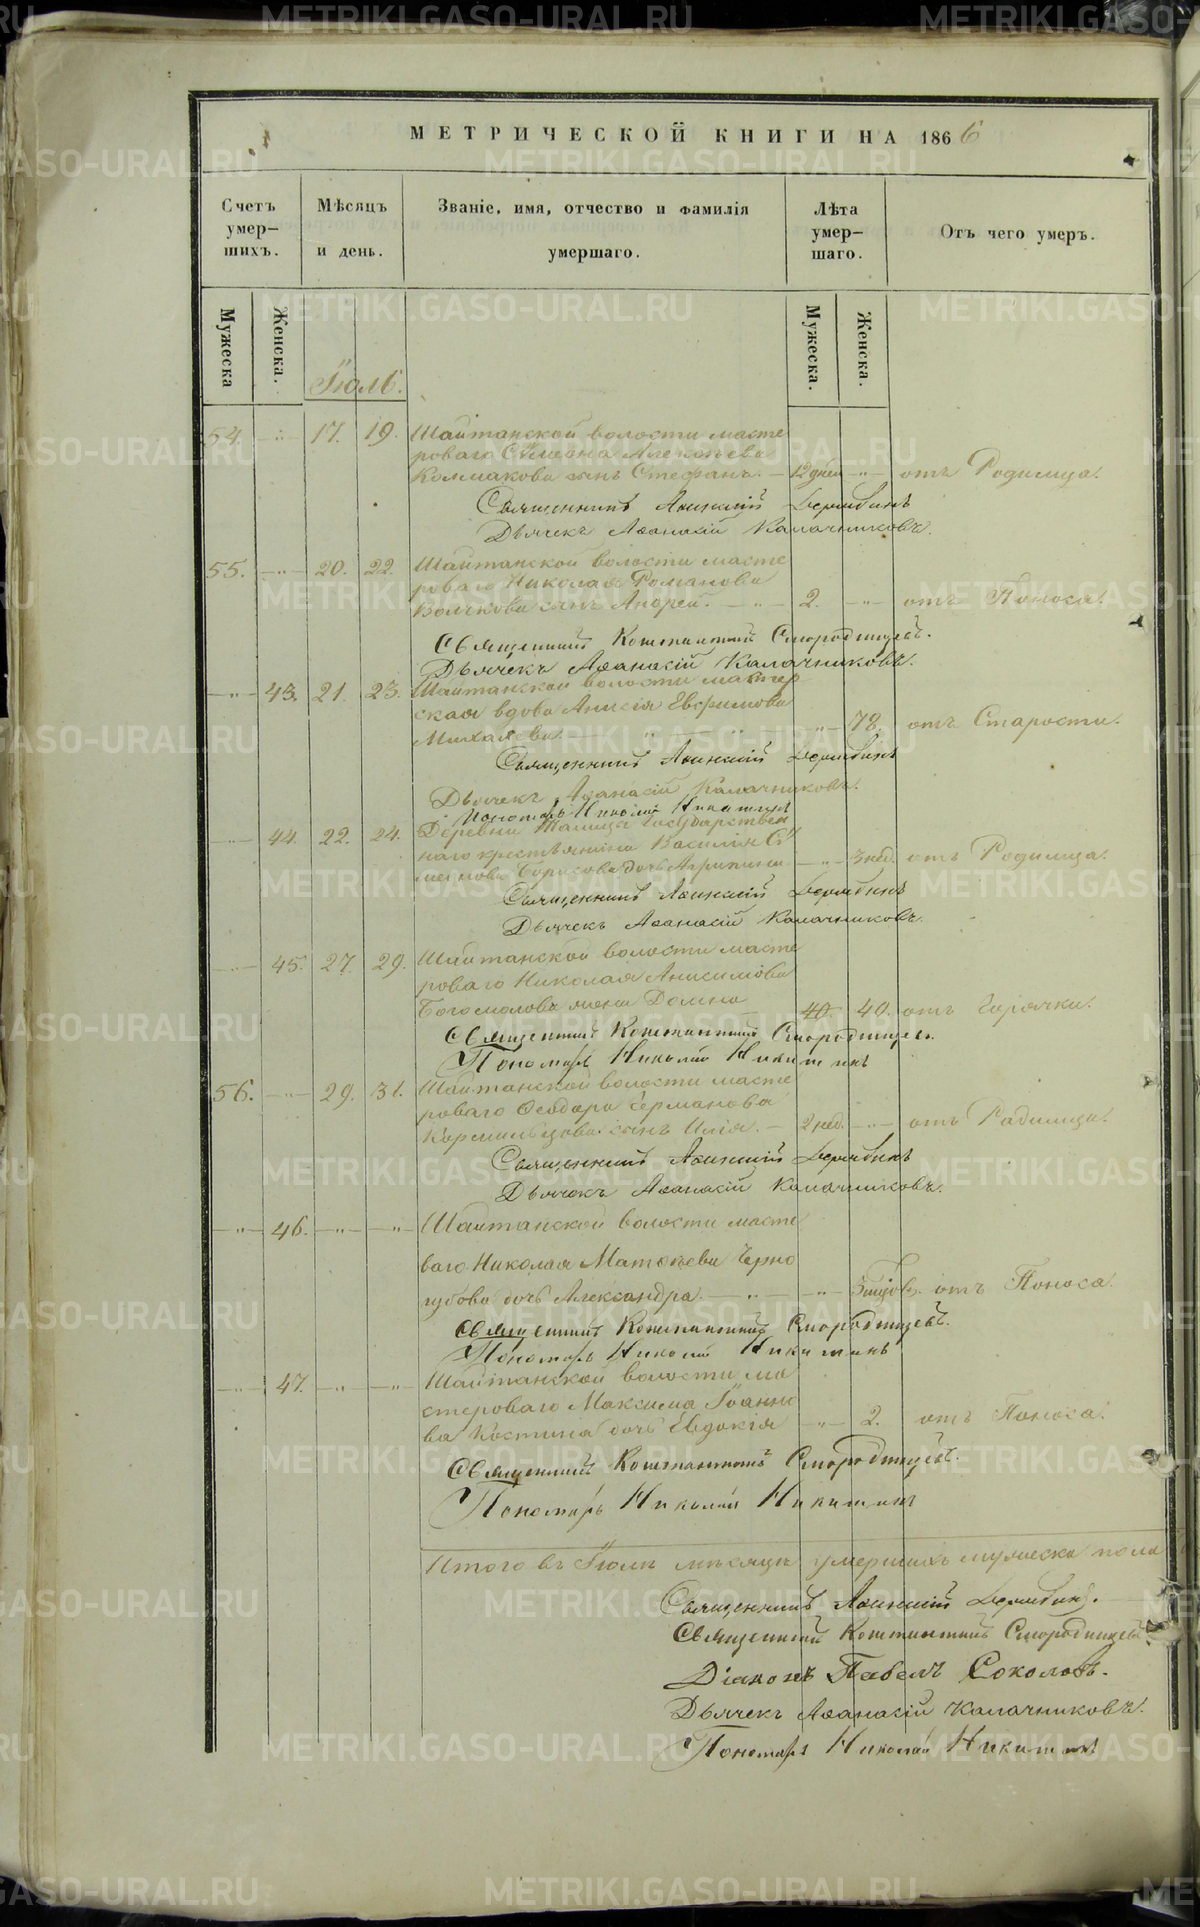 МЕТРИЧЕСКОЙ КНИГИ НА 1866
Счетъ умер-шихъ.
Мѣсяцъ и день.
Званіе, имя, отчество и фамилія умершаго.
Лѣта умер-шаго.
Отъ чего умеръ.
Мужеска
Женска.
Мужеска.
Женска.
Іюль.
54. 17. 19. Шайтанской волости масте
роваго Сѵмеона Алексѣева
Колмакова сынъ Стефанъ. 12 дней отъ Родимца.
Священникъ
Дьячекъ Аѳанасій Калачниковъ.
55. 20. 22. Шайтанской волости масте
роваго Николая Романова
Волчкова сынъ Андрей. 2. отъ Поноса.
Священникъ Константинъ Смородинцевъ.
Дьячекъ Аѳанасій Калачниковъ.
43. 21. 23. Шайтанской волости мастер
ская вдова Анисія Евфимова
Михалева. 78. отъ Старости.
Священникъ
Дьячекъ Аѳанасій Калачниковъ.
Пономарь Николай Никитинъ
44. 22. 24. Деревни Талицы государствен
наго крестьянина Василія Сѵ
меонова Борисова дочь Агрипина 3 нед. отъ Родимца.
Священникъ
Дьячекъ Аѳанасій Калачниковъ.
45. 27. 29. Шайтанской волости масте
роваго Николая Анисимова
Богомолова жена Домна 40. 40. отъ Горячки.
Священникъ Константинъ Смородинцевъ.
Пономарь Николай Никитинъ
56. 29. 31. Шайтанской волости масте
роваго Ѳеодора Германова
Кормильцова сынъ Илія. 2 нед. отъ Радимца.
Священникъ
Дьячекъ Аѳанасій Калачниковъ.
46. Шайтанской волости масте
ваго Николая Матѳеева Черно
губова дочь Александра. отъ Поноса.
Священникъ Константинъ Смородинцевъ.
Пономарь Николай Никитинъ
47. Шайтанской волости ма
стероваго Максима Іоанно
ва Костина дочь Евдокія 2. отъ Поноса.
Священникъ Константинъ Смородинцевъ.
Пономарь Николай Никитинъ
Итого въ Іюлѣ мѣсяцѣ умершихъ мужеска пола
Священникъ
Священникъ Константинъ Смородинцевъ.
Діаконъ Павелъ Соколовъ.
Дьячекъ Аѳанасій Калачниковъ.
Пономарь Николай Никитинъ
METRIKI.GASO-URAL.RU